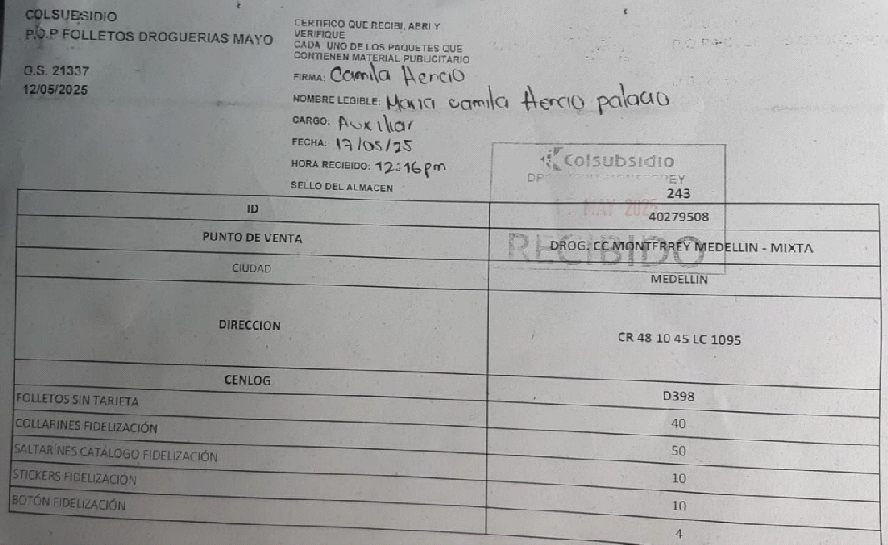 COLSUBSIDIO
P.O.P FOLLETOS DROGUERIAS MAYO
O.S. 21337
12/05/2025
CERTIFICO QUE RECIBI, ABRI Y
VERIFIQUE
CADA UNO DE LOS PAQUETES QUE
CONTIENEN MATERIAL PUBLICITARIO
FIRMA: Camila Hencio
NOMBRE LEGIBLE: Maria camila Hencio palacio
CARGO: Auxiliar
FECHA: 17/05/25
HORA RECIBIDO: 12:16pm
SELLO DEL ALMACEN
Colsubsidio
243
MAY 2025
RECIBIDO
ID 40279508
PUNTO DE VENTA DROG. CC MONTERREY MEDELLIN - MIXTA
CIUDAD MEDELLIN
DIRECCION CR 48 10 45 LC 1095
CENLOG D398
FOLLETOS SIN TARJETA 40
COLLARINES FIDELIZACIÓN 50
SALTARINES CATÁLOGO FIDELIZACIÓN 10
STICKERS FIDELIZACIÓN 10
BOTÓN FIDELIZACIÓN 4